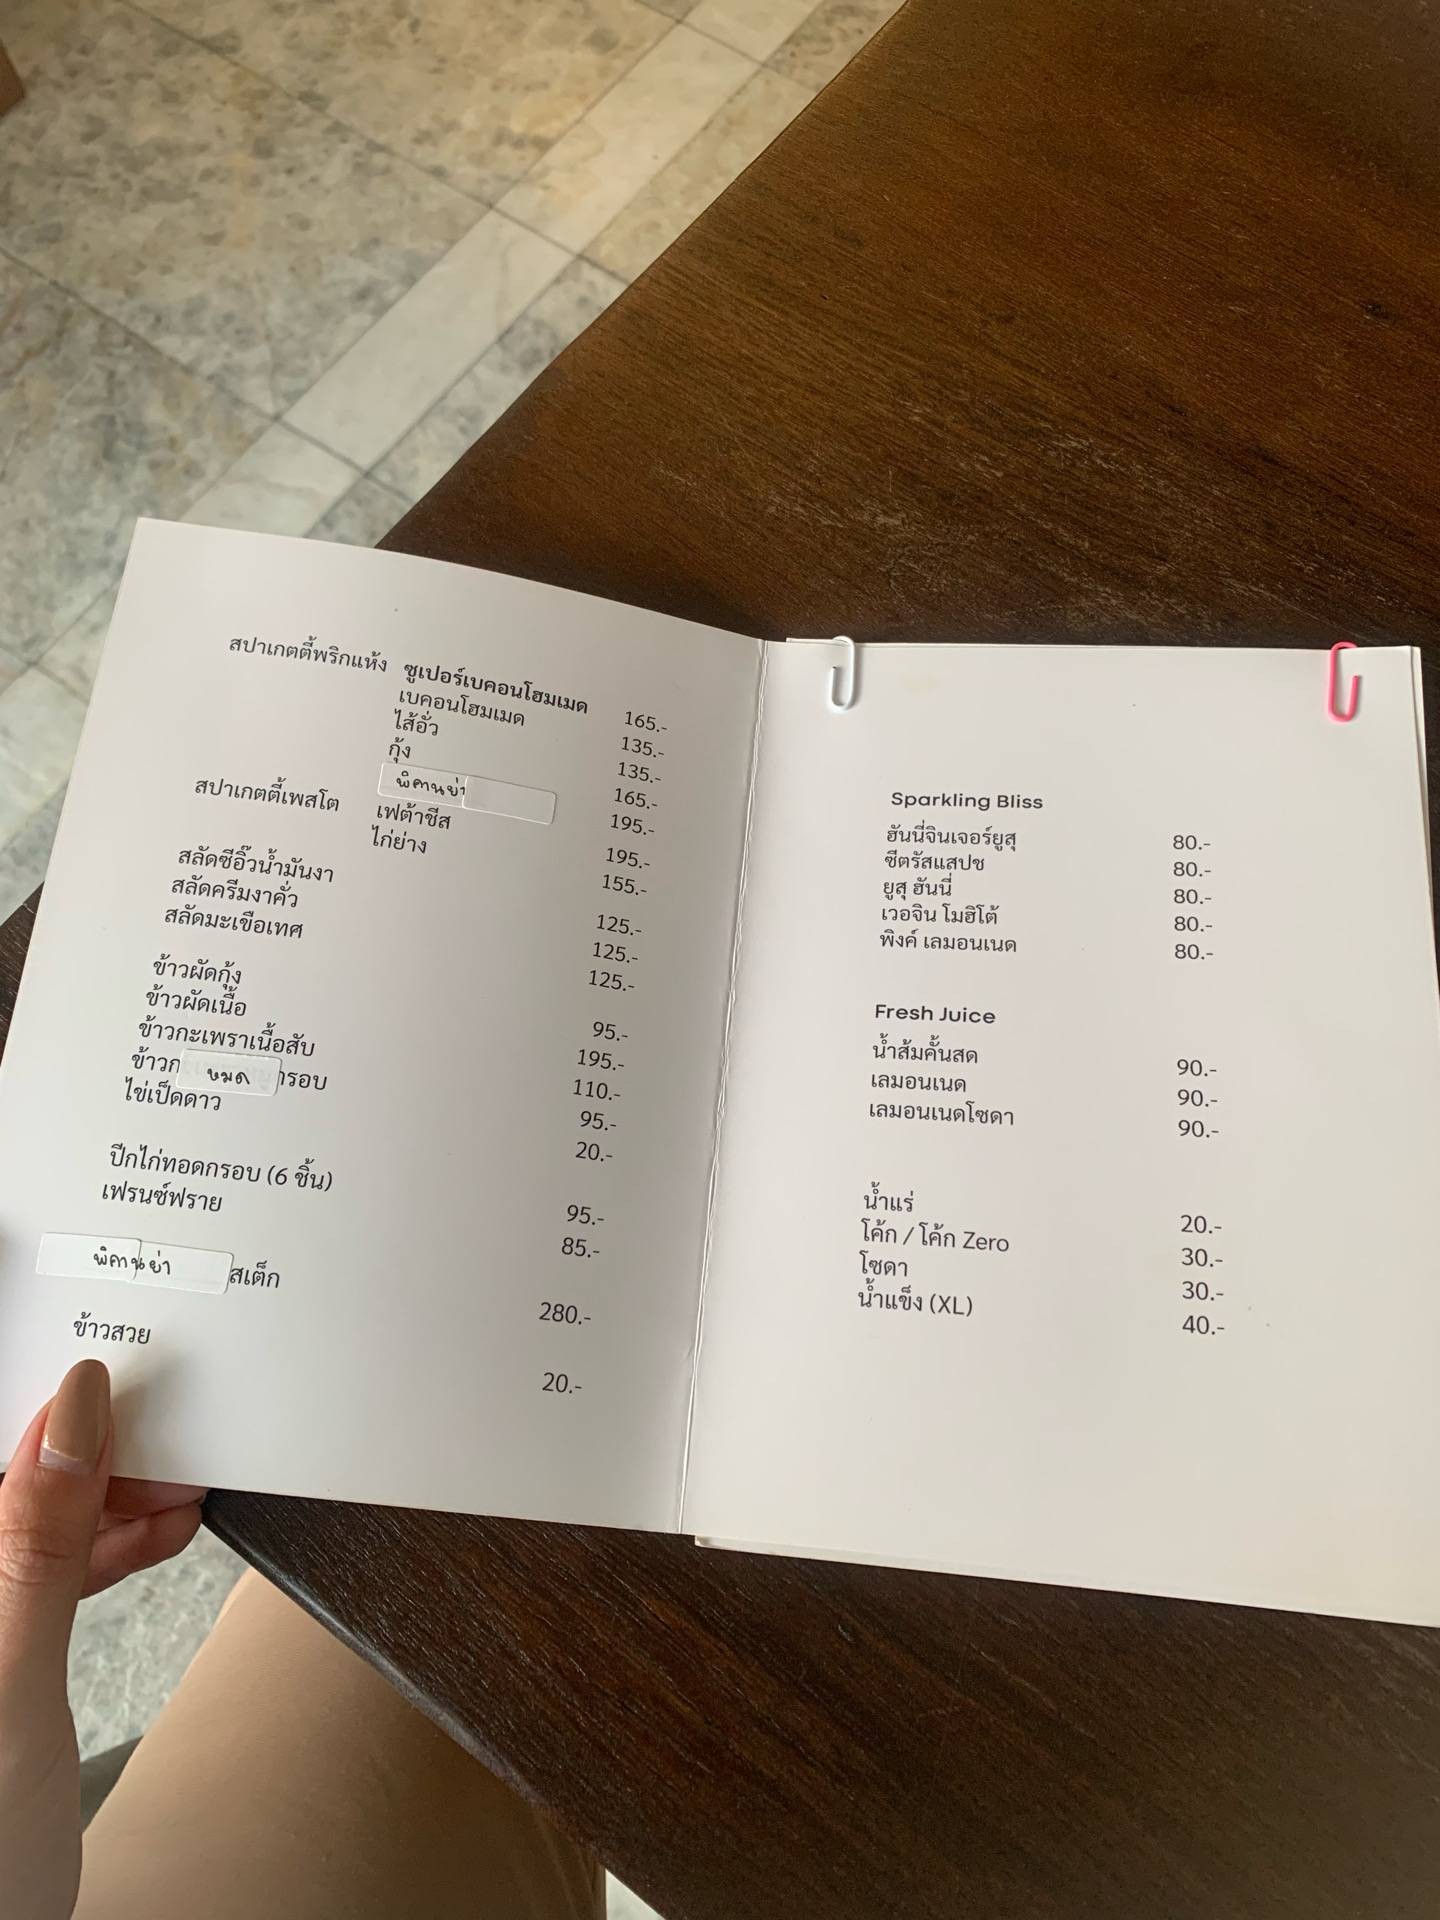 สปาเกตตี้พริกแห้ง ซูเปอร์เบคอนโฮมเมด 165.-
เบคอนโฮมเมด 135.-
ไส้อั่ว 135.-
กุ้ง 165.-
พิคานย่า 195.-
สปาเกตตี้เพสโต เฟต้าชีส 195.-
ไก่ย่าง 155.-
สลัดซีอิ๊วน้ำมันงา 125.-
สลัดครีมงาคั่ว 125.-
สลัดมะเขือเทศ 125.-
ข้าวผัดกุ้ง 95.-
ข้าวผัดเนื้อ 195.-
ข้าวกะเพราเนื้อสับ 110.-
ข้าวก หมด กรอบ 95.-
ไข่เป็ดดาว 20.-
ปีกไก่ทอดกรอบ (6 ชิ้น) 95.-
เฟรนซ์ฟราย 85.-
พิคานย่า สเต็ก 280.-
ข้าวสวย 20.-
Sparkling Bliss
ฮันนี่จินเจอร์ยูสุ 80.-
ซีตรัสแสปช 80.-
ยูสุ ฮันนี่ 80.-
เวอจิน โมฮิโต้ 80.-
พิงค์ เลมอนเนด 80.-
Fresh Juice
น้ำส้มคั้นสด 90.-
เลมอนเนด 90.-
เลมอนเนดโซดา 90.-
น้ำแร่ 20.-
โค้ก / โค้ก Zero 30.-
โซดา 30.-
น้ำแข็ง (XL) 40.-